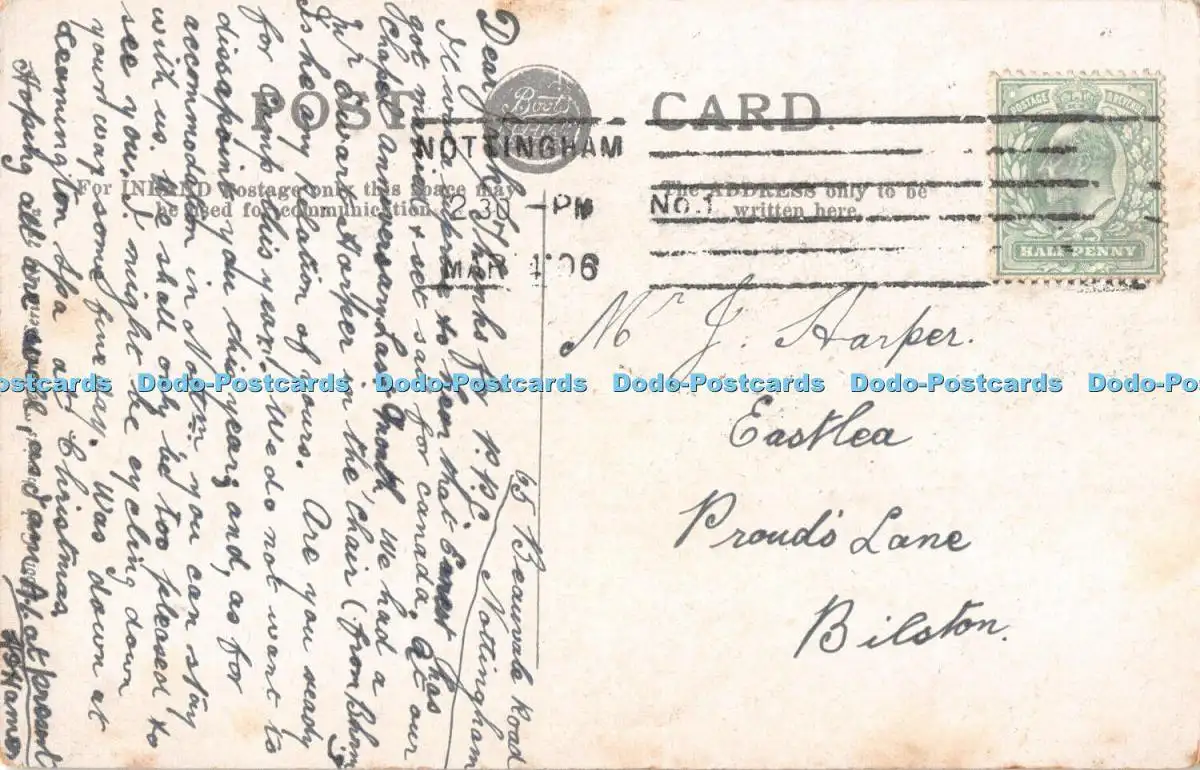 POST CARD.
Boots
For INLAND Postage only this space may
be used for communication.
The ADDRESS only to be
written here.
NOTTINGHAM
2 30 PM
MAR 4 06
NO.1
POSTAGE REVENUE
HALFPENNY
Mr J. Harper.
Eastlea
Proud's Lane
Bilston.
65 Beauvale Road
Nottingham
Dear J. Thanks for P.P.C.
It was a surprise to hear that Ernest has
got married & set sail for canada. At our
Chapel Anniversary Last Month we had a
Mr Edward Harper in the chair (from Bham)
Is he any relation of yours. Are you ready
for Camp this year? We do not want to
dissapoint you this year, and, as for
accommodation in Nottm: you can stay
with us. We shall only be too pleased to
see you. I might be cycling down
your way some fine day. Was down at
Leamington Spa at Christmas.
Hoping all are well, as I am A1 at present
Dodo-Postcards Dodo-Postcards Dodo-Postcards Dodo-Postcards Dodo-Postcards